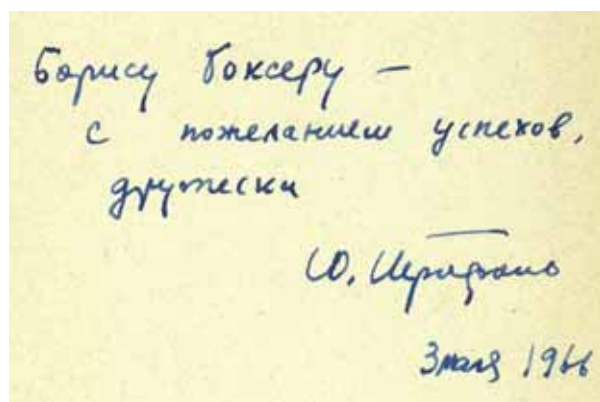 Борису Боксеру –
с пожеланием успехов,
дружески
Ю.
3 мая 1966